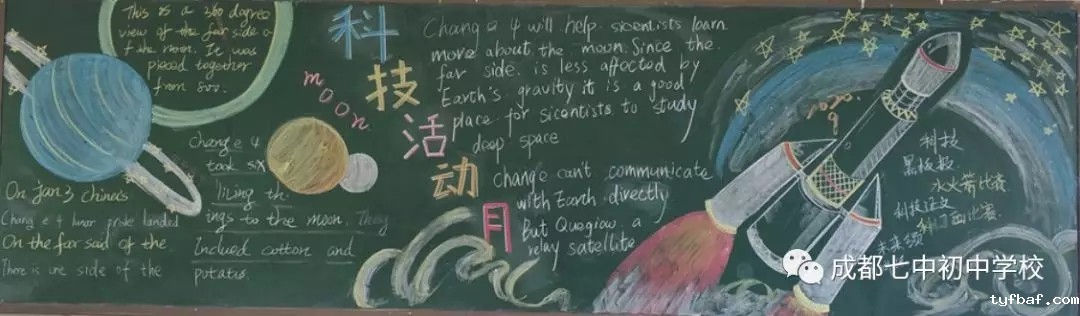 This is a 360 degree
view of the far side o
f the moon. It was
pieced together
from
科
技
活
动
月
moon
Chang e 4 will help scientists learn
more about the moon. Since the
far side is less affected by
Earth's gravity it is a good
place for scientists to study
deep space
change can't communicate
with Earth directly
But
relay satellite
chang e 4
took six
living th-
ings to the moon. They
Inclued cotton and
potatos.
On Jan 3 Chines
Chang e 4 lunar landed
On the far said of the
There is one side of the
科技
黑板报
水火箭比赛
科技征文
比赛
成都七中初中学校
tyfbaf.com